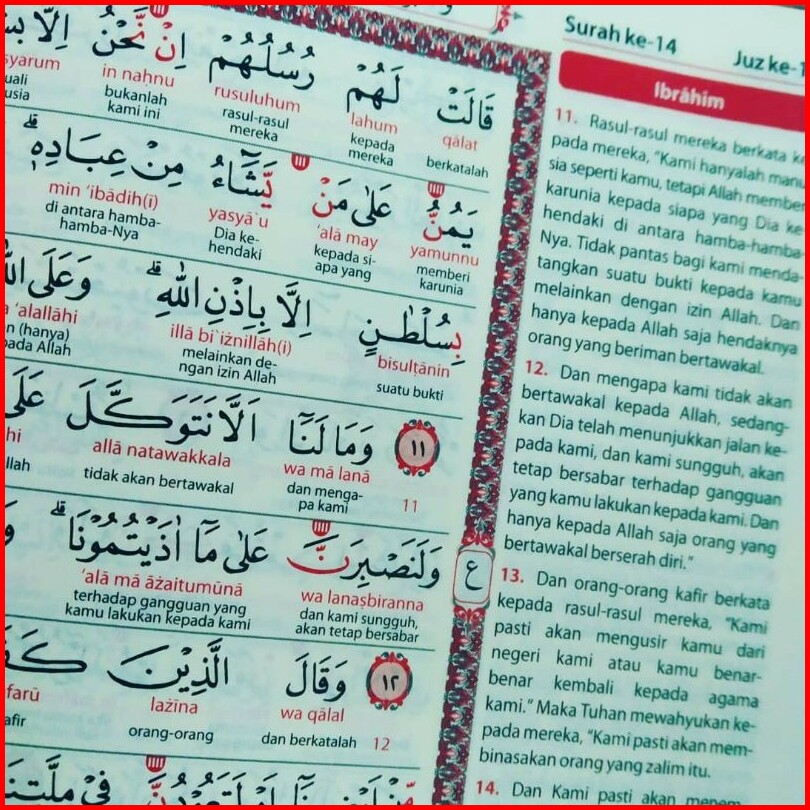 Surah ke-14
Juz ke-1
Ibrâhîm
قَالَتْ لَهُمْ رُسُلُهُمْ اِنْ نَّحْنُ اِلَّا
qâlat lahum rusuluhum in naḥnu
berkatalah kepada mereka rasul-rasul mereka bukanlah kami ini
يَمُنُّ عَلٰى مَنْ يَّشَاۤءُ مِنْ عِبَادِهٖۗ
yamunnu 'alâ may yasyâ`u min 'ibâdih(î)
memberi karunia kepada si-apa yang Dia ke-hendaki di antara hamba-hamba-Nya
بِسُلْطٰنٍ اِلَّا بِاِذْنِ اللّٰهِ ۗ وَعَلَى
bisulṭânin illâ bi`iżnillâh(i) 'alallâhi
suatu bukti melainkan de-ngan izin Allah (hanya) Allah
١١ وَمَا لَنَآ اَلَّا نَتَوَكَّلَ عَلَى
11 wa mâ lanâ allâ natawakkala
dan menga-pa kami tidak akan bertawakal
وَلَنَصْبِرَنَّ عَلٰى مَآ اٰذَيْتُمُوْنَاۗ
wa lanaṣbiranna 'alâ mâ âżaitumûnâ
dan kami sungguh, akan tetap bersabar terhadap gangguan yang kamu lakukan kepada kami
ع
١٢ وَقَالَ الَّذِيْنَ
12 wa qâlal lażîna
dan berkatalah orang-orang
11. Rasul-rasul mereka berkata
pada mereka, "Kami hanyalah
sia seperti kamu, tetapi Allah
karunia kepada siapa yang Dia ke-
hendaki di antara hamba-hamba-
Nya. Tidak pantas bagi kami menda-
tangkan suatu bukti kepada kamu
melainkan dengan izin Allah. Dan
hanya kepada Allah saja hendaknya
orang yang beriman bertawakal.
12. Dan mengapa kami tidak akan
bertawakal kepada Allah, sedang-
kan Dia telah menunjukkan jalan ke-
pada kami, dan kami sungguh, akan
tetap bersabar terhadap gangguan
yang kamu lakukan kepada kami. Dan
hanya kepada Allah saja orang yang
bertawakal berserah diri."
13. Dan orang-orang kafir berkata
kepada rasul-rasul mereka, "Kami
pasti akan mengusir kamu dari
negeri kami atau kamu benar-
benar kembali kepada agama
kami." Maka Tuhan mewahyukan ke-
pada mereka, "Kami pasti akan mem-
binasakan orang yang zalim itu.
14. Dan Kami pasti akan